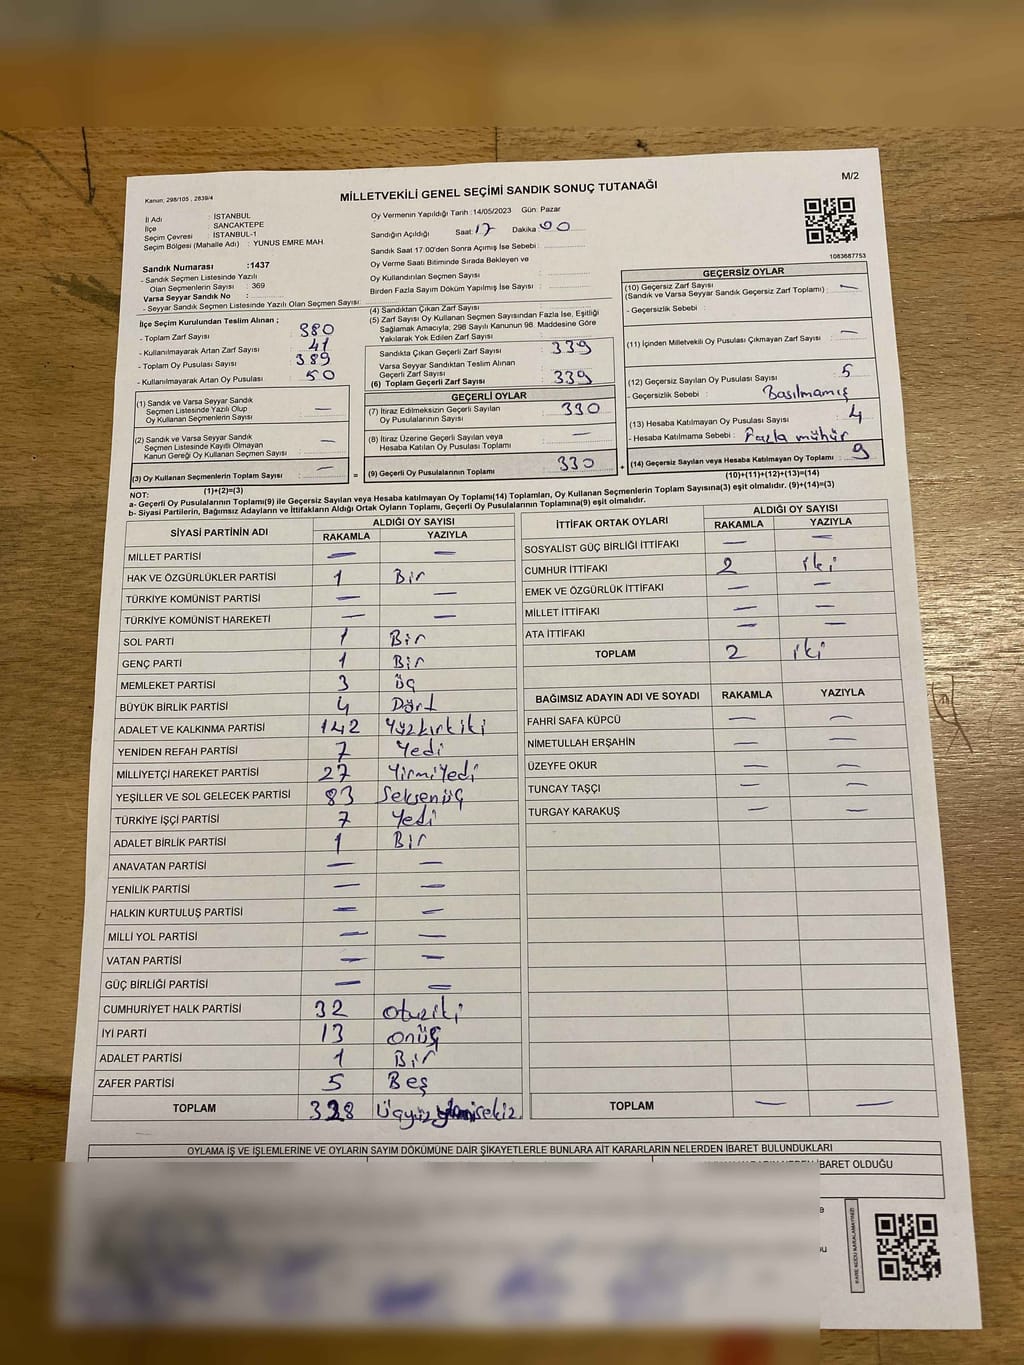 M/2
Kanun: 298/105 , 2839/4
MİLLETVEKİLİ GENEL SEÇİMİ SANDIK SONUÇ TUTANAĞI
İl Adı : İSTANBUL
İlçe : SANCAKTEPE
Seçim Çevresi : İSTANBUL-1
Seçim Bölgesi (Mahalle Adı) : YUNUS EMRE MAH.
Sandık Numarası :1437
- Sandık Seçmen Listesinde Yazılı
Olan Seçmenlerin Sayısı : 369
Varsa Seyyar Sandık No :
- Seyyar Sandık Seçmen Listesinde Yazılı Olan Seçmen Sayısı:
Oy Vermenin Yapıldığı Tarih :14/05/2023 Gün: Pazar
Sandığın Açıldığı Saat: 17 Dakika: 00
Sandık Saat 17:00'den Sonra Açımış İse Sebebi :
Oy Verme Saati Bitiminde Sırada Bekleyen ve
Oy Kullandırılan Seçmen Sayısı :
Birden Fazla Sayım Döküm Yapılmış İse Sayısı :
1083687753
İlçe Seçim Kurulundan Teslim Alınan ;
- Toplam Zarf Sayısı : 380
- Kullanılmayarak Artan Zarf Sayısı : 41
- Toplam Oy Pusulası Sayısı : 389
- Kullanılmayarak Artan Oy Pusulası : 50
(1) Sandık ve Varsa Seyyar Sandık
Seçmen Listesinde Yazılı Olup
Oy Kullanan Seçmenlerin Sayısı : —
(2) Sandık ve Varsa Seyyar Sandık
Seçmen Listesinde Kayıtlı Olmayan
Kanun Gereği Oy Kullanan Seçmen Sayısı : —
(3) Oy Kullanan Seçmenlerin Toplam Sayısı : —
(1)+(2)=(3)
(4) Sandıktan Çıkan Zarf Sayısı :
(5) Zarf Sayısı Oy Kullanan Seçmen Sayısından Fazla İse, Eşitliği
Sağlamak Amacıyla, 298 Sayılı Kanunun 98. Maddesine Göre
Yakılarak Yok Edilen Zarf Sayısı :
Sandıkta Çıkan Geçerli Zarf Sayısı : 339
Varsa Seyyar Sandıktan Teslim Alınan
Geçerli Zarf Sayısı :
(6) Toplam Geçerli Zarf Sayısı : 339
GEÇERLİ OYLAR
(7) İtiraz Edilmeksizin Geçerli Sayılan
Oy Pusulalarının Sayısı : 330
(8) İtiraz Üzerine Geçerli Sayılan veya
Hesaba Katılan Oy Pusulası Toplamı : —
= (9) Geçerli Oy Pusulalarının Toplamı : 330 +
GEÇERSİZ OYLAR
(10) Geçersiz Zarf Sayısı
(Sandık ve Varsa Seyyar Sandık Geçersiz Zarf Toplamı) : —
- Geçersizlik Sebebi :
(11) İçinden Milletvekili Oy Pusulası Çıkmayan Zarf Sayısı : —
(12) Geçersiz Sayılan Oy Pusulası Sayısı : 5
- Geçersizlik Sebebi : Basılmamış
(13) Hesaba Katılmayan Oy Pusulası Sayısı : 4
- Hesaba Katılmama Sebebi : Fazla mühür
(14) Geçersiz Sayılan veya Hesaba Katılmayan Oy Toplamı : 9
(10)+(11)+(12)+(13)=(14)
NOT:
a- Geçerli Oy Pusulalarının Toplamı(9) ile Geçersiz Sayılan veya Hesaba katılmayan Oy Toplamı(14) Toplamları, Oy Kullanan Seçmenlerin Toplam Sayısına(3) eşit olmalıdır. (9)+(14)=(3)
b- Siyasi Partilerin, Bağımsız Adayların ve İttifakların Aldığı Ortak Oyların Toplamı, Geçerli Oy Pusulalarının Toplamına(9) eşit olmalıdır.
SİYASİ PARTİNİN ADI ALDIĞI OY SAYISI
RAKAMLA YAZIYLA
MİLLET PARTİSİ — —
HAK VE ÖZGÜRLÜKLER PARTİSİ 1 Bir
TÜRKİYE KOMÜNİST PARTİSİ — —
TÜRKİYE KOMÜNİST HAREKETİ — —
SOL PARTİ 1 Bir
GENÇ PARTİ 1 Bir
MEMLEKET PARTİSİ 3 üç
BÜYÜK BİRLİK PARTİSİ 4 Dört
ADALET VE KALKINMA PARTİSİ 142 Yüzkırkiki
YENİDEN REFAH PARTİSİ 7 Yedi
MİLLİYETÇİ HAREKET PARTİSİ 27 YirmiYedi
YEŞİLLER VE SOL GELECEK PARTİSİ 83 Seksenüç
TÜRKİYE İŞÇİ PARTİSİ 7 Yedi
ADALET BİRLİK PARTİSİ 1 Bir
ANAVATAN PARTİSİ — —
YENİLİK PARTİSİ — —
HALKIN KURTULUŞ PARTİSİ — —
MİLLİ YOL PARTİSİ — —
VATAN PARTİSİ — —
GÜÇ BİRLİĞİ PARTİSİ — —
CUMHURİYET HALK PARTİSİ 32 otuziki
İYİ PARTİ 13 onüç
ADALET PARTİSİ 1 Bir
ZAFER PARTİSİ 5 Beş
TOPLAM 328
İTTİFAK ORTAK OYLARI ALDIĞI OY SAYISI
RAKAMLA YAZIYLA
SOSYALİST GÜÇ BİRLİĞİ İTTİFAKI — —
CUMHUR İTTİFAKI 2 iki
EMEK VE ÖZGÜRLÜK İTTİFAKI — —
MİLLET İTTİFAKI — —
ATA İTTİFAKI — —
TOPLAM 2 iki
BAĞIMSIZ ADAYIN ADI VE SOYADI RAKAMLA YAZIYLA
FAHRİ SAFA KÜPCÜ — —
NİMETULLAH ERŞAHİN — —
ÜZEYFE OKUR — —
TUNCAY TAŞÇI — —
TURGAY KARAKUŞ — —
TOPLAM — —
OYLAMA İŞ VE İŞLEMLERİNE VE OYLARIN SAYIM DÖKÜMÜNE DAİR ŞİKAYETLERLE BUNLARA AİT KARARLARIN NELERDEN İBARET BULUNDUKLARI
İBARET OLDUĞU